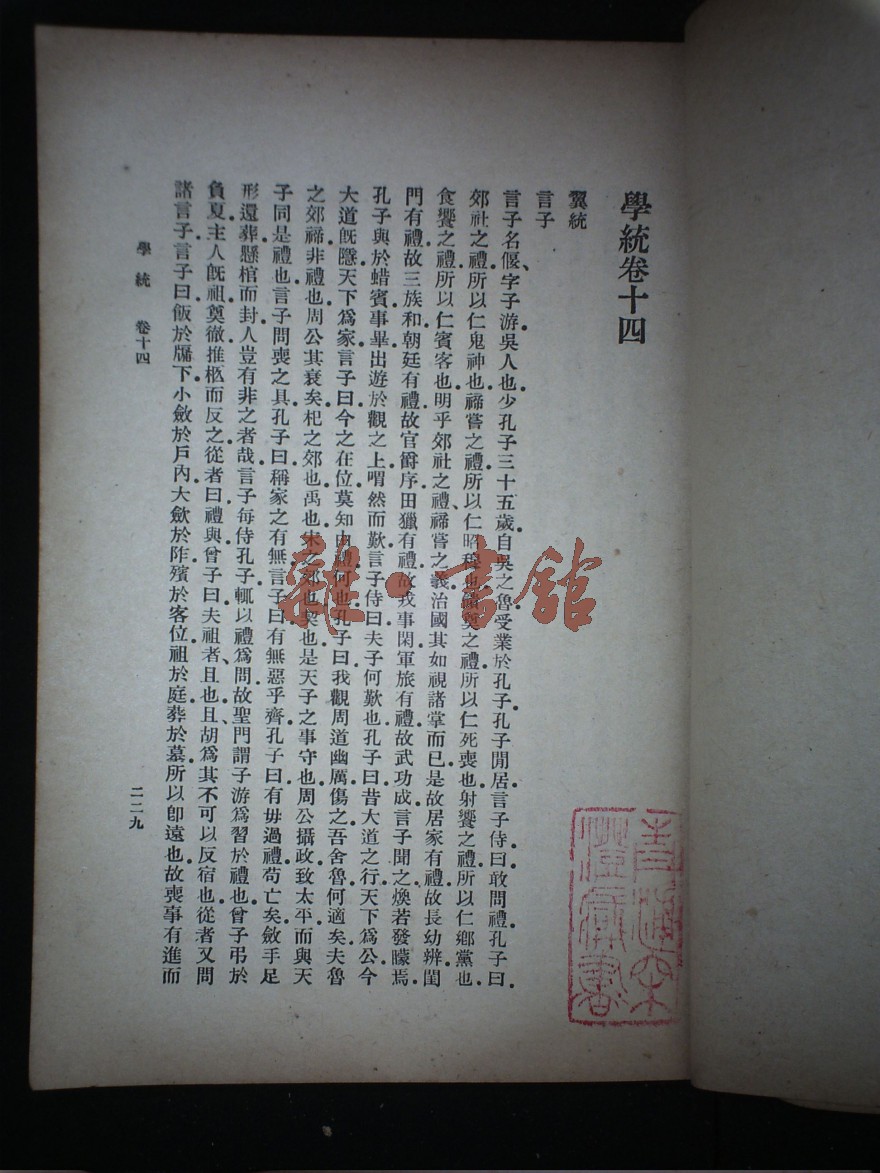 學統卷十四
翼統
言子
言子名偃、字子游吳人也少孔子三十五歲自吳之魯受業於孔子孔子閒居言子侍曰敢問禮孔子曰
郊社之禮所以仁鬼神也禘嘗之禮所以仁昭穆也饋奠之禮所以仁死喪也射饗之禮所以仁鄉黨也
食饗之禮所以仁賓客也明乎郊社之禮、禘嘗之義治國其如視諸掌而已是故居家有禮故長幼辨閨
門有禮故三族和朝廷有禮故官爵序田獵有禮故戎事閑軍旅有禮故武功成言子聞之煥若發矇焉
孔子與於蜡賓事畢出遊於觀之上喟然而歎言子侍曰夫子何歎也孔子曰昔大道之行天下爲公今
大道既隱天下爲家言子曰今之在位莫知由禮何也孔子曰我觀周道幽厲傷之吾舍魯何適矣夫魯
之郊禘非禮也周公其衰矣杞之郊也禹也宋之郊也契也是天子之事守也周公攝政致太平而與天
子同是禮也言子問喪之具孔子曰稱家之有無言子曰有無惡乎齊孔子曰有毋過禮苟亡矣斂手足
形還葬懸棺而封人豈有非之者哉言子每侍孔子輒以禮爲問故聖門謂子游爲習於禮也曾子弔於
負夏主人既祖奠徹推柩而反之從者曰禮與曾子曰夫祖者、且也且、胡爲其不可以反宿也從者又問
諸言子言子曰飯於牖下小斂於戶內大斂於阼殯於客位祖於庭葬於墓所以卽遠也故喪事有進而
學統 卷十四
二二九
雜·書館